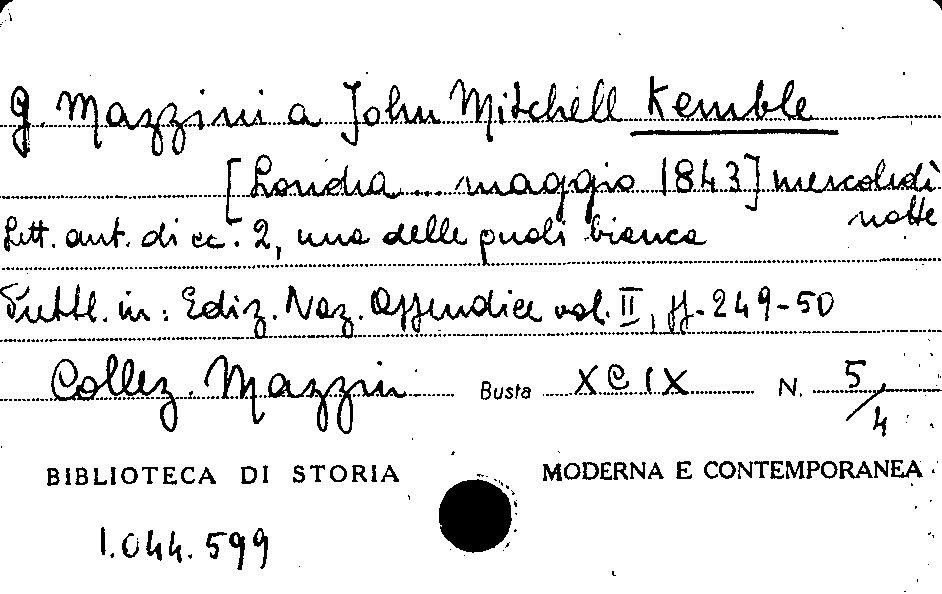 G. Mazzini a John Mitchell Kemble
[Londra... maggio 1843] mercoledì
notte
Lett. aut. di cc. 2, una delle quali bianca
Pubbl. in: Ediz. Naz. Appendice vol. II, pp. 249-50
Collez. Mazzini Busta XCIX N. 5/4
BIBLIOTECA DI STORIA MODERNA E CONTEMPORANEA
1.044.599